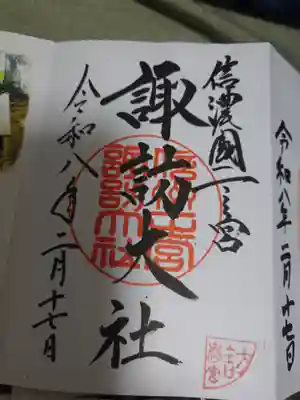 令和八年二月十七日
信濃國一之宮
諏訪大社
令和八年二月十七日